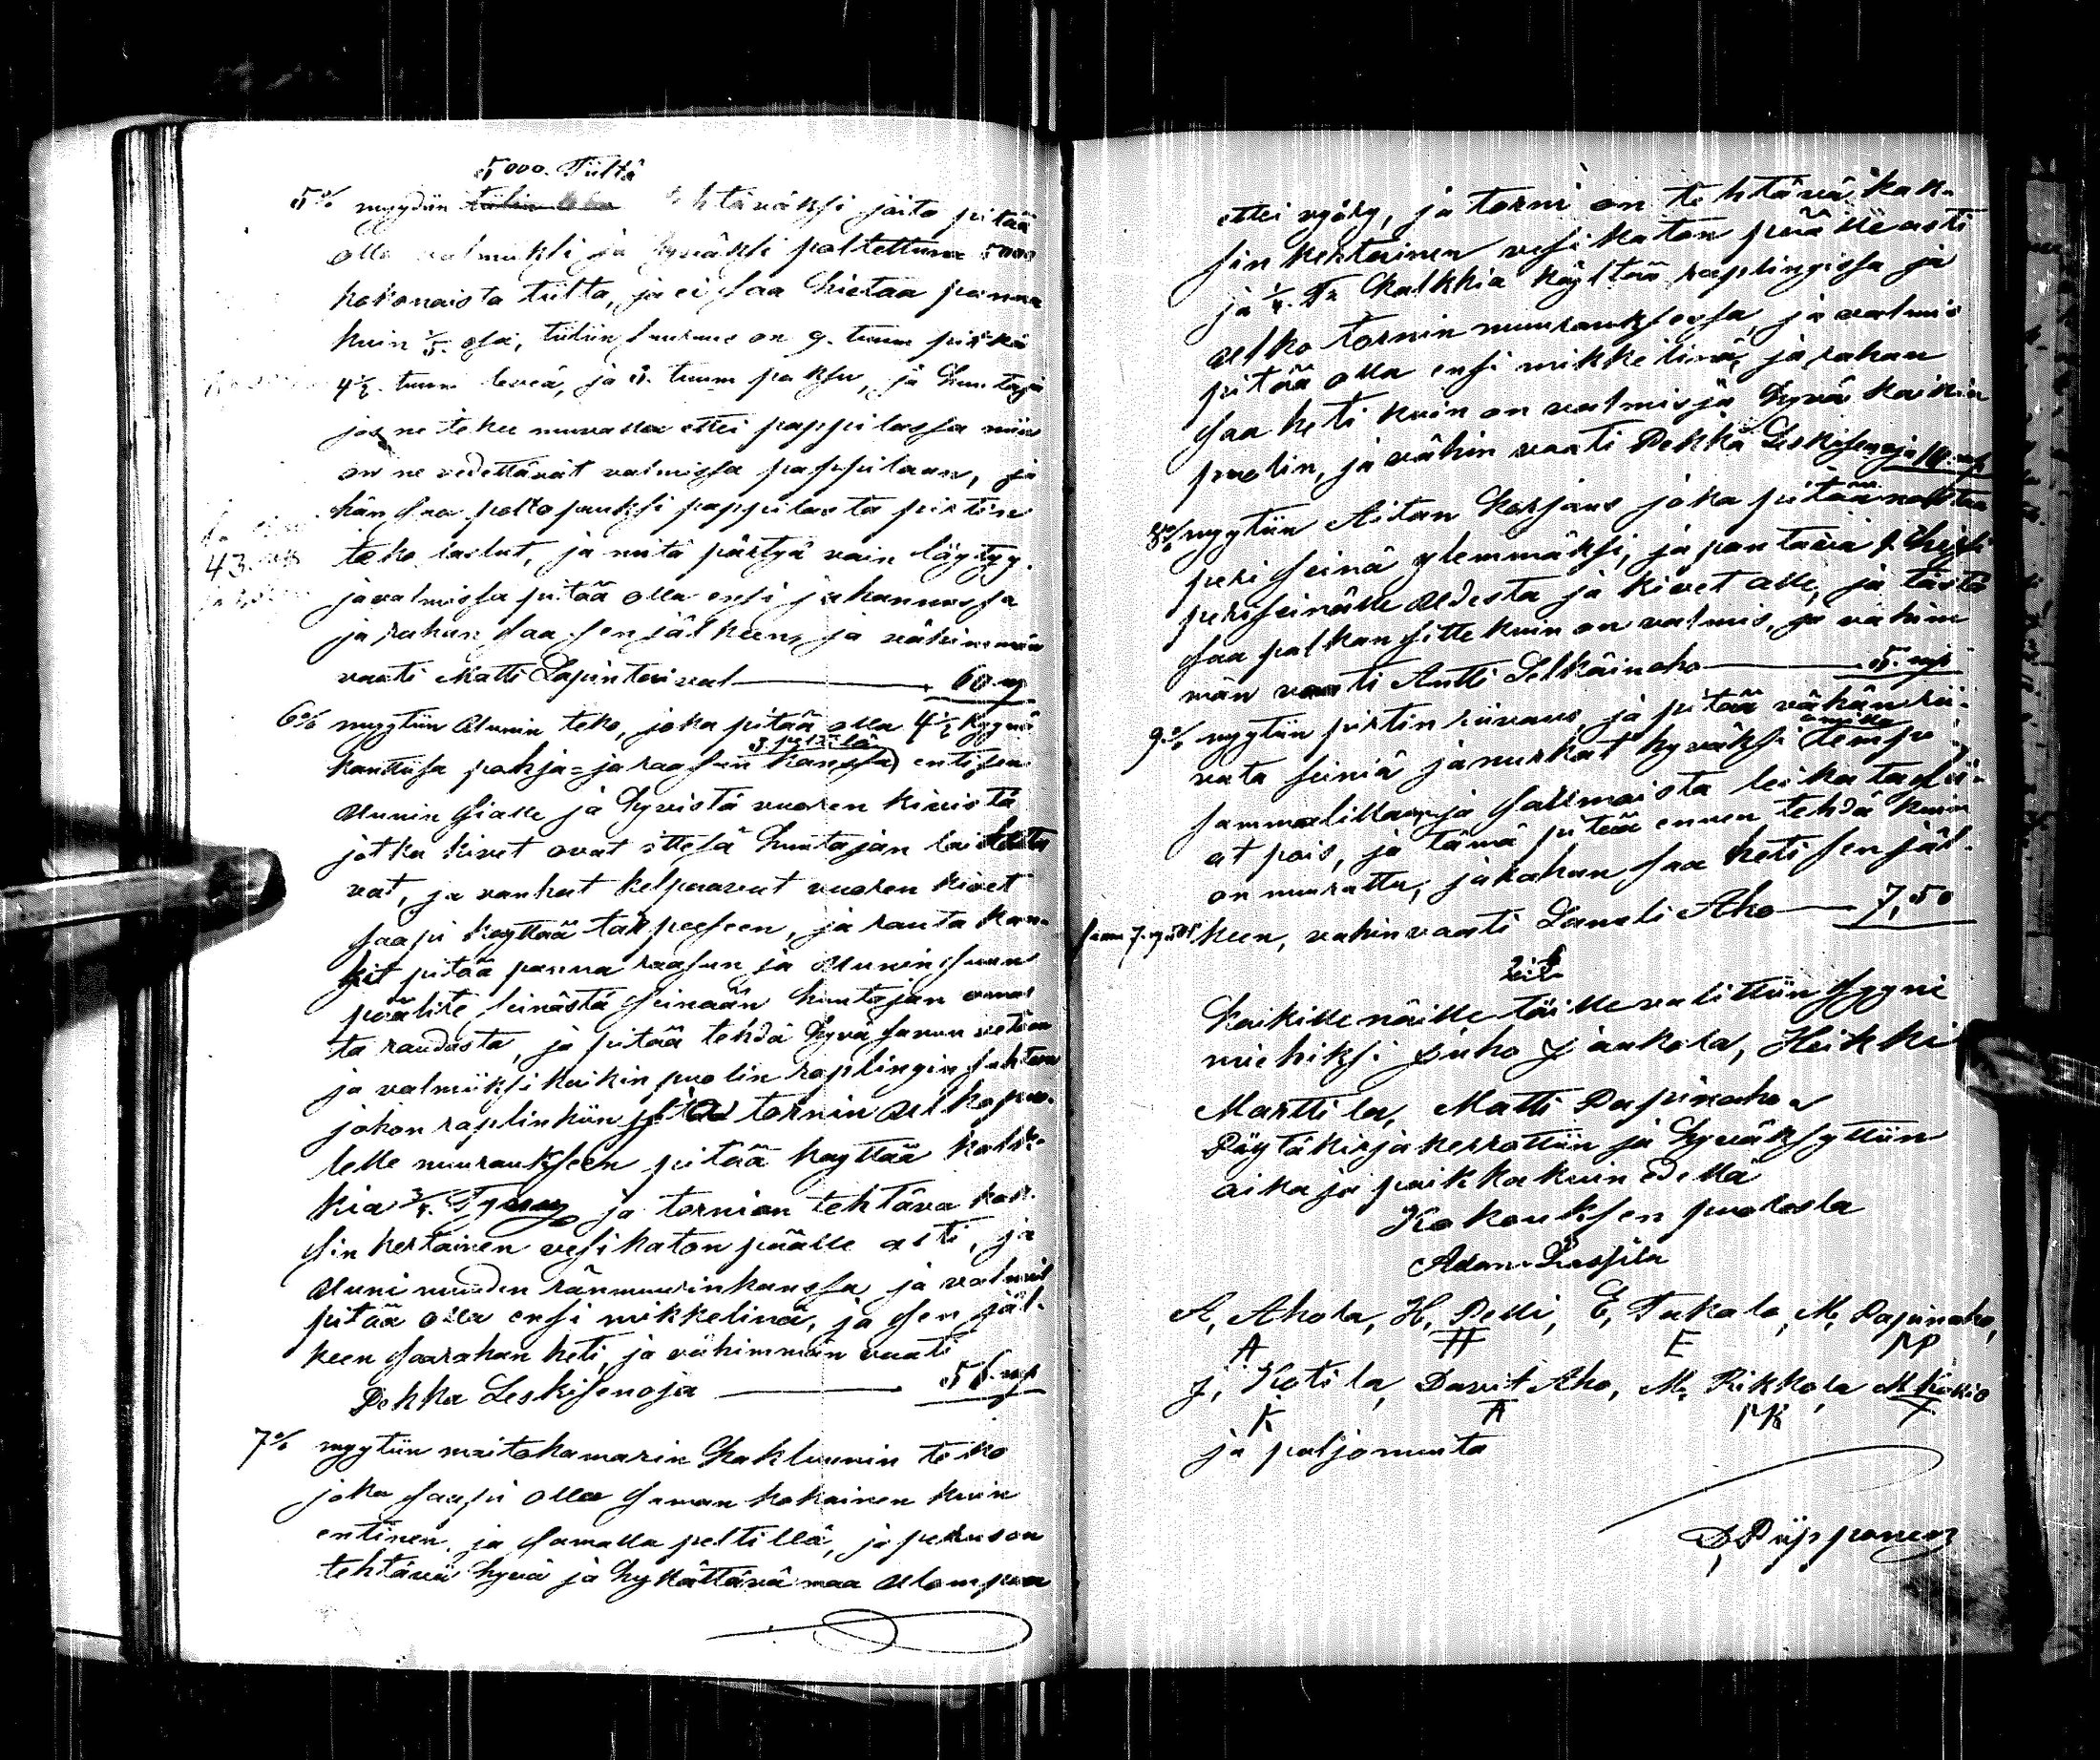 5000. Tiiltä
5% myydiin tehtäväksi joita pitää
olla valmiiksi ja hyväksi poltettuna 5000
kokonaista tiiltä, ja ei saa hietaa panna
kuin 1/5. osa, tiilin suuruus on 9. tuum pitkä
4 1/2. tuum leveä, ja 3. tuum paksu, ja huutaja
jos ne tekee muualla ettei pappilassa niin
on ne vedettävät valmissa pappilaan, ja
hän saa polto puuksi pappilasta pirtin
teko lastut, ja mitä pärtyä vain löytyy.
43. mk
ja valmissa pitää olla ensi juhannussa
ja rahan saa sen jälkeen, ja vähimmän
vaati Matti Lapintaival 60 m
6% myytiin Uunin teko, joka pitää olla 4 1/2 kyynä
kanttisa pohja= ja raasun kanssa entisen
Uunin sialle ja hyvistä vuoren kivistä
jotka kivet ovat ittesä huutajan laitetta
vat, ja vanhat kelpaavat vuoren kivet
saapi käyttää tarpeeseen, ja rauta kan-
get pitää panna raasun ja Uunin suun
päälite seinästä seinään huutajan omas
ta raudasta, ja pitää tehdä hyvä savun vetoon
ja valmiiksi kaikin puolin raplingin suhteen
johon raplinkiin ja tornin Ulkopuo-
lelle muuraukseen pitää käyttää kalk-
kia 3/4. Tynny ja torni on tehtävä kak-
sin kertainen vesikaton päälle asti, ja
Uuni muuden ränmuurin kanssa, ja valmis
pitää olla ensi mikkelinä, ja sen jäl-
keen saa rahan heti, ja vähimmän vaati
Pekka Leskisenoja 56 mk
7% myytiin maitokamarin Kakluunin teko
joka saapi olla saman kokoinen kuin
entinen, ja samalla peltillä, ja perus on
tehtävä hyvä ja hykättävä maa Ulompaa
ettei vyöry, ja torni on tehtävä kak-
sin kertainen vesikaton päälle asti
ja 1/4. Tr kalkkia käyttää raplingissa ja
ulko tornin muurauksessa, ja valmis
pitää olla ensi mikkelinä, ja rahan
saa heti kuin on valmis ja hyvä kaikin
puolin, ja vähin vaati Pekka Leskisenoja 18. mk
8% myytiin Aitan korjaus joka pitää nostaa
peri seinä ylemmäksi, ja pantava
periseinälle Uudesta ja kivet alle, ja tästä
saa palkan sitte kuin on valmis, ja vähim
män vaati Antti Selkäinaho 5. mk
9% myytiin pirtin siivous, ja pitää vähän sii-
vota seiniä ja nurkat hyväksi
sammalillaan ja
at pois, ja tämä pitää ennen tehdä kuin
on muurattu, ja rahan saa heti sen jäl-
keen, vähin vaati Taneli Aho 7,50
2 §
Kaikille näille töille valittiin syyni
miehiksi Juho Jaakola, Heikki
Marttila, Matti Papinaho
Pöytäkirja kerrottiin ja hyväksyttiin
aika ja paikka kuin edellä
Kokouksen puolesta
Adam Lassila
A, Ahola, H, Pelli, E, Takala, M, Papinaho,
A H E MP
J, Kotila, Davit Aho, M, Rikkola
K A MR
ja paljo muita
D, Piipponen